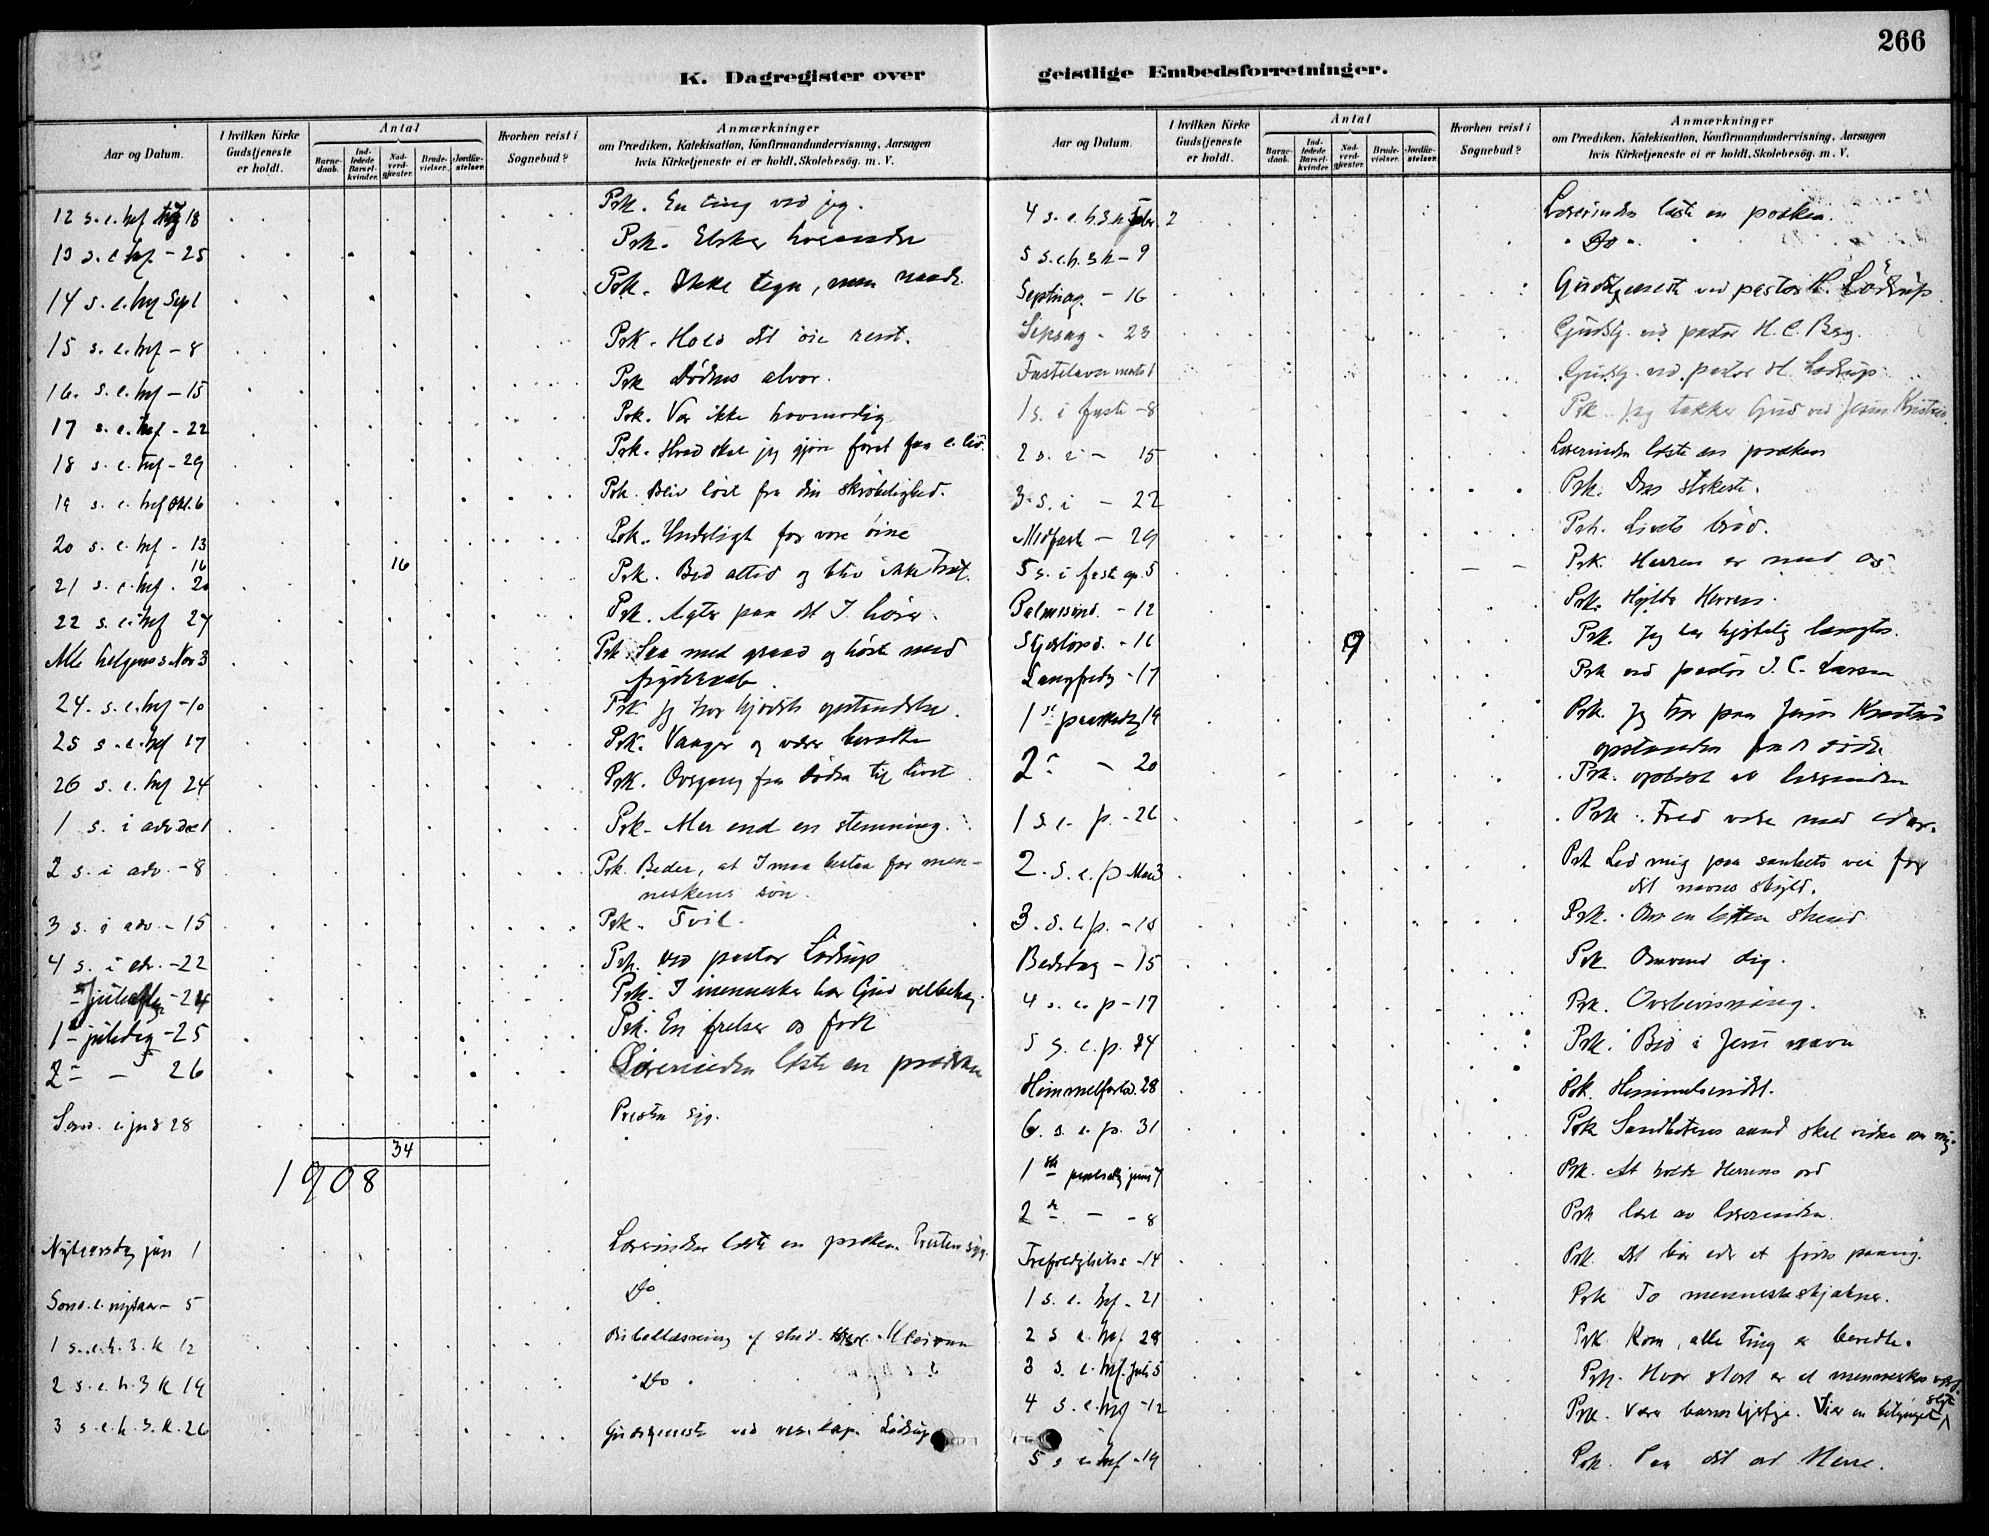 266
K. Dagregister over geistlige Embedsforretninger.
Aar og Datum.
I hvilken Kirke Gudstjeneste er holdt.
Antal
Barne-daab.
Ind-ledede Barsel-kvinder.
Nad-verd-gjæster.
Brude-vielser.
Jordfæ-stelser.
Hvorhen reist i Sognebud?
Anmærkninger
om Prædiken, Katekisation, Konfirmandundervisning, Aarsagen
hvis Kirketjeneste ei er holdt, Skolebesög. m. V.
12 s. e. hef aug 18 Prk. En ting ved jeg.
13 s. e. hef. - 25 Prk. Elsker hverandre
14 s. e. hef Sept 1 Prk. Ikke tegn, men naade.
15 s. e. hef - 8 Prk. Hold dit öie rent.
16. s. e. hef - 15 Prk Dödens alvor.
17 s. e. hef - 22 Prk. Vær ikke hovmodig
18 s. e. hef - 29 Prk. Hvad skal jeg gjöre foret faa e. liv.
19 s. e. hef Okt. 6 Prk. Bliv löst fra din skröbelighed.
20 s. e. hef - 13 Prk. Underligt for vore öine
16 16
21 s. e. hef. 20 Prk. Bed altid og bliv ikke træt.
22 s. e. hef 27 Prk. Agter paa det I hörer.
Alle helgens s Nov 3 Prk. Saa med graad og höst med
frydeskab
24. s. e. hef - 10 Prk. Jeg tror kjödets opstandelse.
25 s. e. hef 17 Prk. Vaager og være beredte
26 s. e. hef 24 Prk. Overgang fra döden til livet
1 s. i adv dec 1 Prk. Mer end en stemning.
2 s. i adv. - 8 Prk. Beder, at I maa bestaa for men-
neskens sön.
3 s. i adv. - 15 Prk. Tvil.
4 s. i adv. - 22 Prk. ved pastor Lödrup
Juleaften - 24 Prk. I mennesker har Gud velbehag.
1ste juledag - 25 Prk. En frelser os födt
2den - 26 Lærerinden læste en prædiken
Sönd. e. jul 28 Presten syg.
34
1908
Nytaarsdag jan 1 Lærerinden læste en præken. Presten syg.
Sönd. e. nytaar - 5 Do
1 s. e. h. 3. k 12 Bibellæsning af stud.
2 s. e. h. 3 k 19 Do
3 s. e. h. 3. k. 26 Gudstjeneste ved res. kap. Lödrup
Aar og Datum.
I hvilken Kirke Gudstjeneste er holdt.
Antal
Barne-daab.
Ind-ledede Barsel-kvinder.
Nad-verd-gjæster.
Brude-vielser.
Jordfæ-stelser.
Hvorhen reist i Sognebud?
Anmærkninger
om Prædiken, Katekisation, Konfirmandundervisning, Aarsagen
hvis Kirketjeneste ei er holdt, Skolebesög. m. V.
4 s. e. h. 3 k Febr. 2 Lærerinden læste en præken.
5 s. e. h. 3 k - 9 Do
Septuag. - 16 Gudstjeneste ved pastor H. Lödrup
Sexag - 23 Gudstj. ved pastor H. C. Berg.
Fastelavn marts 1 Gudstj. ved pastor H. Lödrup
1 s. i faste - 8 Prk. Jeg takker Gud ved Jesus Kristus
2 s. i - 15 Lærerinden læste en præken
3. s. i - 22 Prk. Den sterkeste.
Midfaste - 29 Prk. Livets bröd.
5 s. i faste ap. 5 Prk. Herren er med os
Palmesönd. - 12 Prk. Hylde Herren.
Skjærtorsd. - 16 9 Prk. Jeg har hjertelig længtes.
Langfredag - 17 Prk ved pastor J. C. Larsen
1ste paaskedag 19 Prk. Jeg tror paa Jesus Kristus
opstanden fra de döde
2den - 20 Prk. oplæst av lærerinden
1 s. e. p. - 26 Prk. Fred være med eder.
2. s. e. p Mai 3 Prk Led mig paa sanhets vei for
dit navns skyld.
3. s. e. p. - 10 Prk. Om en liten stund
Bededag - 15 Prk Omvend dig.
4 s. e. p - 17 Prk. Overbevisning.
5 s. e. p. 24 Prk. Bed i Jesu navn
Himmelfartsd. 28 Prk. Himmelvendt.
6. s. e. p. 31 Prk Sandhetens aand skal vidne om mig
1ste pinsedag juni 7 Prk. At holde Herrens ord
2den - - 8 Prk læst av lærerinden.
Trefoldighets s - 14 Prk. Det bör eder at födes paany.
1 s. e. hef. 21 Prk To menneskeskjæbner.
2 s e. hef 28 Prk Kom, alle ting er beredte.
3 s. e. hef. juli 5 Prk. Hvor stort er et menneskes værd
4 s. e. hef - 12 Prk. Være barmhjertige. Vi er en slegt
5 s e. hef - 19 Prk. Paa dit ord Herre.